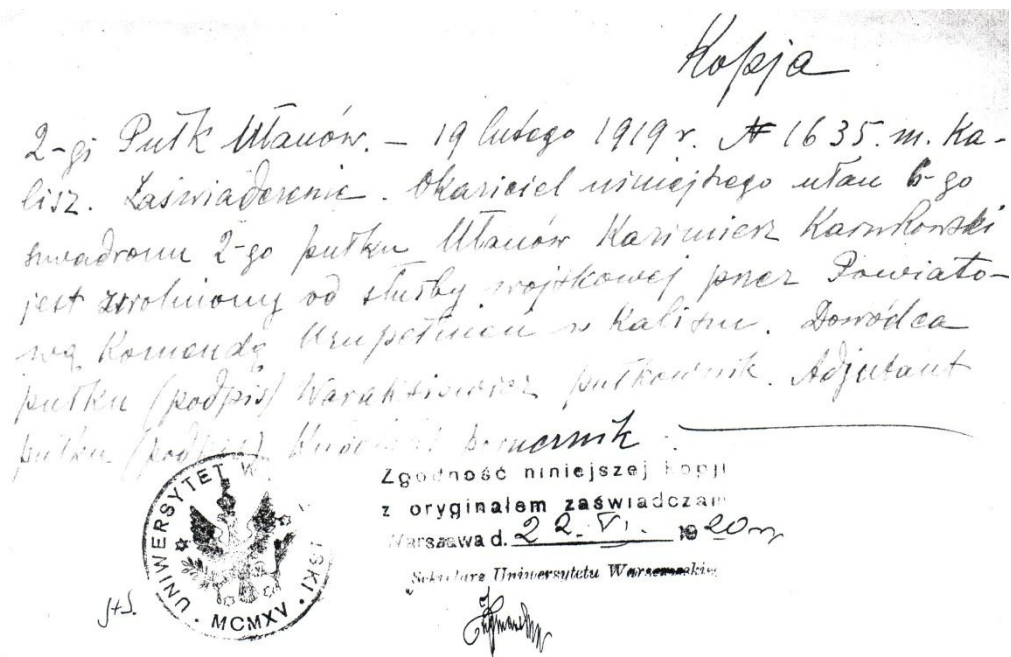 Kopja
2-gi Pułk Ułanów. – 19 lutego 1919 r. № 1635. m. Ka-
lisz. Zaświadczenie. Okaziciel niniejszego ułan 6-go
szwadronu 2-go pułku Ułanów Kazimierz Karnkowski
jest zwolniony od służby wojskowej przez Powiato-
wą Komendę Uzupełnień w Kaliszu. Dowódca
pułku (podpis) pułkownik. Adjutant
pułku (podpis)
Zgodność niniejszej kopji
z oryginałem zaświadczam
Warszawa d. 22. VI. 1920 r
Sekretarz Uniwersytetu Warszawskiego
UNIWERSYTET W SKI
MCMXV